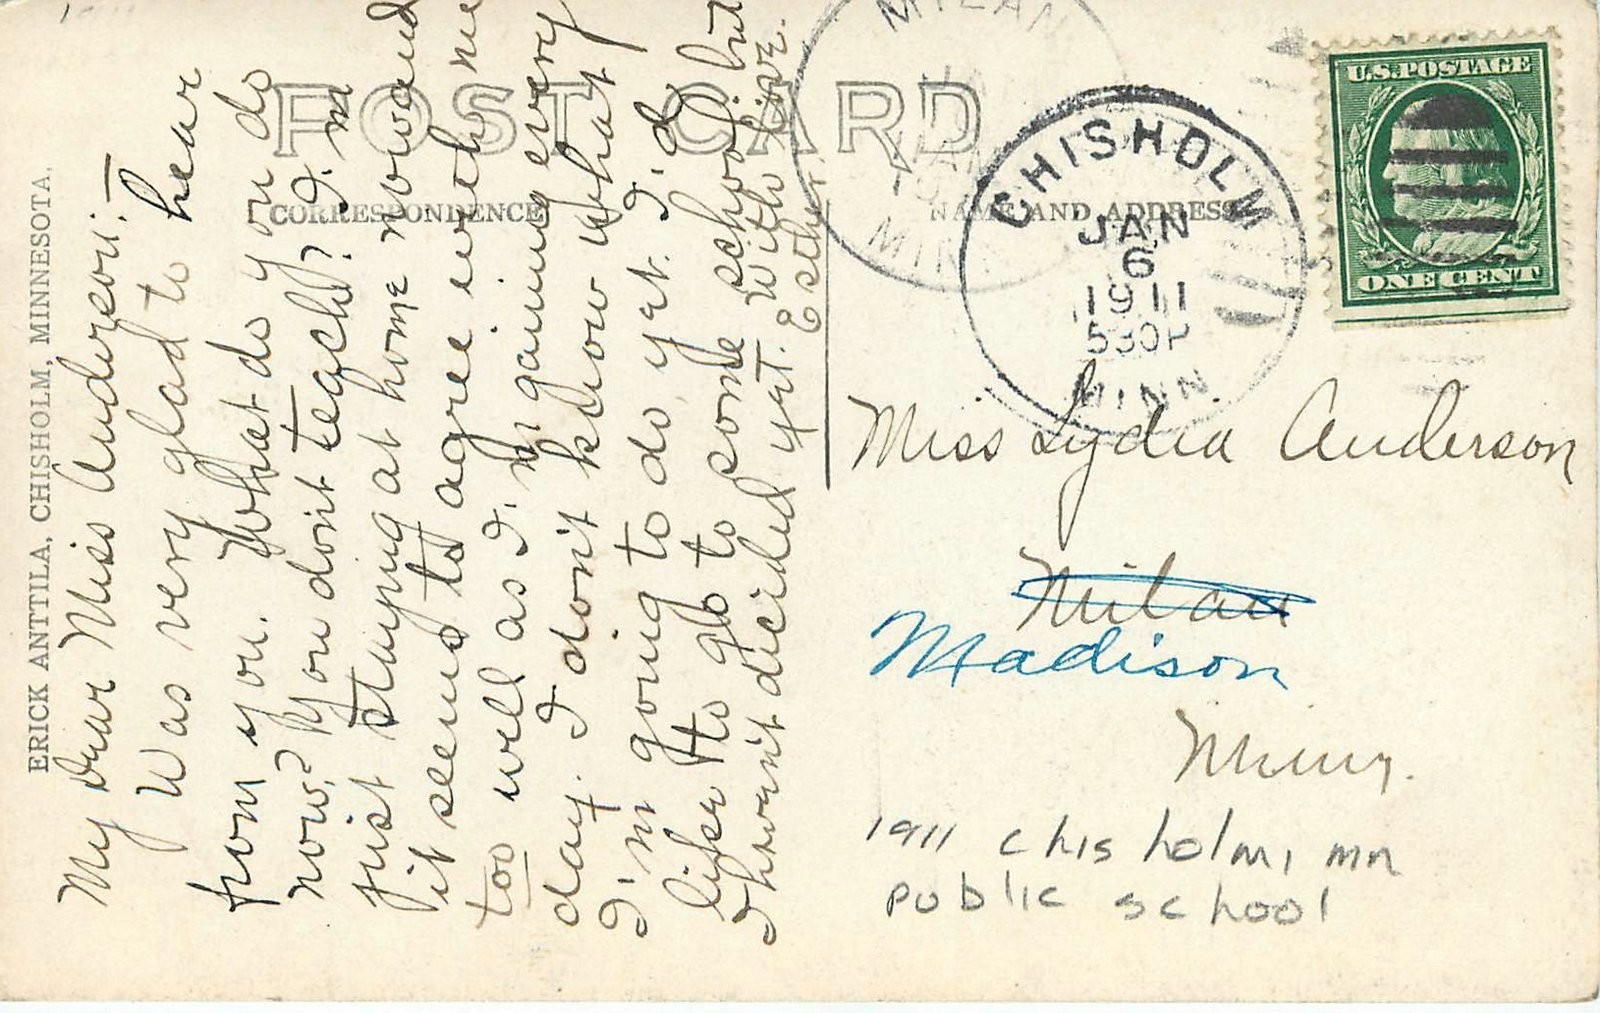 ERICK ANTTILA, CHISHOLM, MINNESOTA.
POST CARD
CORRESPONDENCE
NAME AND ADDRESS
My Dear Miss Anderson:—
Was very glad to hear
from you. What do you do
now? You don't teach? I'm
just staying at home now and
it seems to agree with me
too well as I'm gaining every
day. I don't know what
I'm going to do yet. I'd
like to go to some school but
I haven't decided yet. With love.
Esther
MILAN
JAN
MINN
CHISHOLM
JAN
6
1911
530P
MINN
U.S. POSTAGE
ONE CENT
Miss Lydia Anderson
Milan
Madison
Minn.
1911 Chisholm, mn
public school